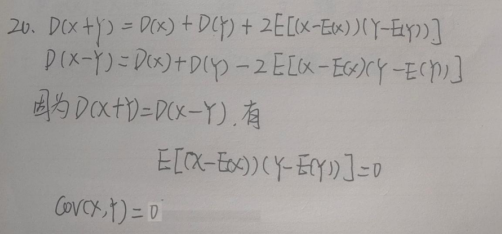 20. D(X+Y) = D(X) + D(Y) + 2E[(X-E(X))(Y-E(Y))]
D(X-Y) = D(X) + D(Y) - 2E[(X-E(X)(Y-E(Y))]
因为D(X+Y)=D(X-Y).有
E[(X-E(X))(Y-E(Y))]=0
Cov(X,Y)=0